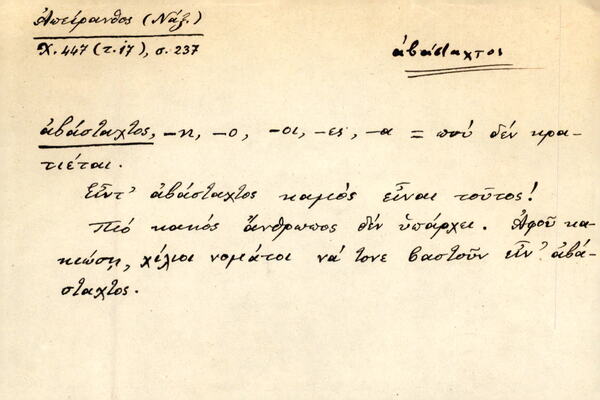 Ἀπείρανθος (Νάξ.)
Χ. 447 (τ. ιγ), σ. 237
ἀβάσταχτος
ἀβάσταχτος, -η, -ο, -οι, -ες, -α = πού δέν κρα-
τιέται.
Εἶντ' ἀβάσταχτος καμός εἶναι τοῦτος!
Πιό κακός ἄνθρωπος δέν ὑπάρχει. Ἀφοῦ κα-
κιώσῃ, χίλιοι νομάτοι νά τονε βαστοῦν εἶν' ἀβά-
σταχτος.